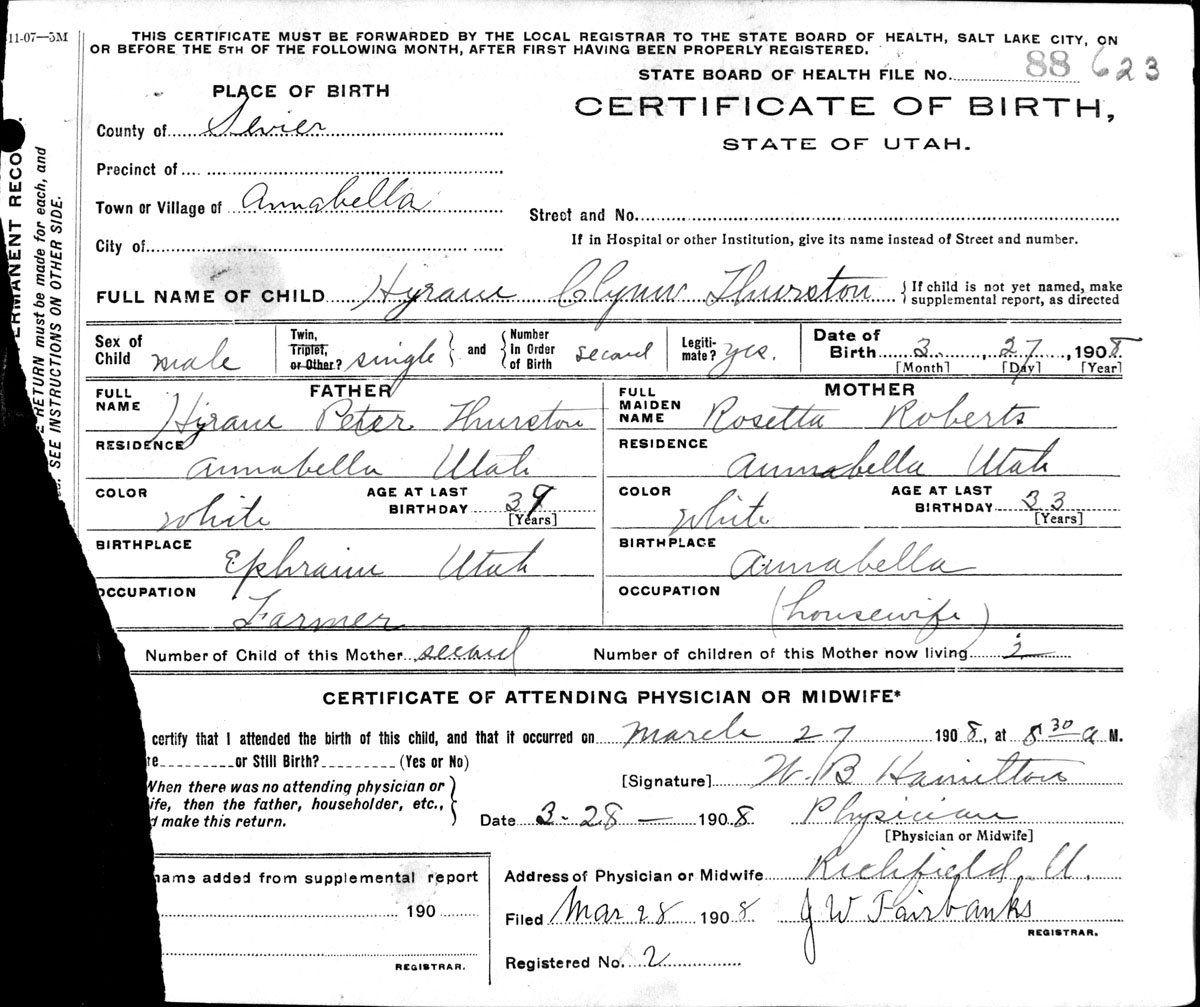 11-07—5M
THIS CERTIFICATE MUST BE FORWARDED BY THE LOCAL REGISTRAR TO THE STATE BOARD OF HEALTH, SALT LAKE CITY, ON
OR BEFORE THE 5TH OF THE FOLLOWING MONTH, AFTER FIRST HAVING BEEN PROPERLY REGISTERED.
STATE BOARD OF HEALTH FILE No. 88 623
PLACE OF BIRTH
CERTIFICATE OF BIRTH,
STATE OF UTAH.
County of Sevier
Precinct of
Town or Village of Annabella
Street and No.
City of
If in Hospital or other Institution, give its name instead of Street and number.
FULL NAME OF CHILD Hyrum Clynn Thurston { If child is not yet named, make
supplemental report, as directed
Sex of Child male Twin, Triplet, or Other? single } and { Number In Order of Birth second Legiti- mate? yes. Date of Birth 3 , 27 , 1908
[Month] [Day] [Year]
FATHER MOTHER
FULL NAME Hyrum Peter Thurston FULL MAIDEN NAME Rosetta Roberts
RESIDENCE Annabella Utah RESIDENCE Annabella Utah
COLOR White AGE AT LAST BIRTHDAY 39 [Years] COLOR White AGE AT LAST BIRTHDAY 33 [Years]
BIRTHPLACE Ephraim Utah BIRTHPLACE Annabella
OCCUPATION Farmer OCCUPATION (housewife)
Number of Child of this Mother second Number of children of this Mother now living 2
CERTIFICATE OF ATTENDING PHYSICIAN OR MIDWIFE*
certify that I attended the birth of this child, and that it occurred on March 27 1908, at 8 30 a M.
re or Still Birth? (Yes or No)
[Signature] W. B Hamilton
When there was no attending physician or
ife, then the father, householder, etc.,
d make this return.
Date 3-28— 1908 Physician
[Physician or Midwife]
name added from supplemental report
190
REGISTRAR.
Address of Physician or Midwife Richfield U.
Filed Mar 28 1908 J W Fairbanks
REGISTRAR.
Registered No. 2
ERMANENT RECO
E RETURN must be made for each, and
SEE INSTRUCTIONS ON OTHER SIDE.